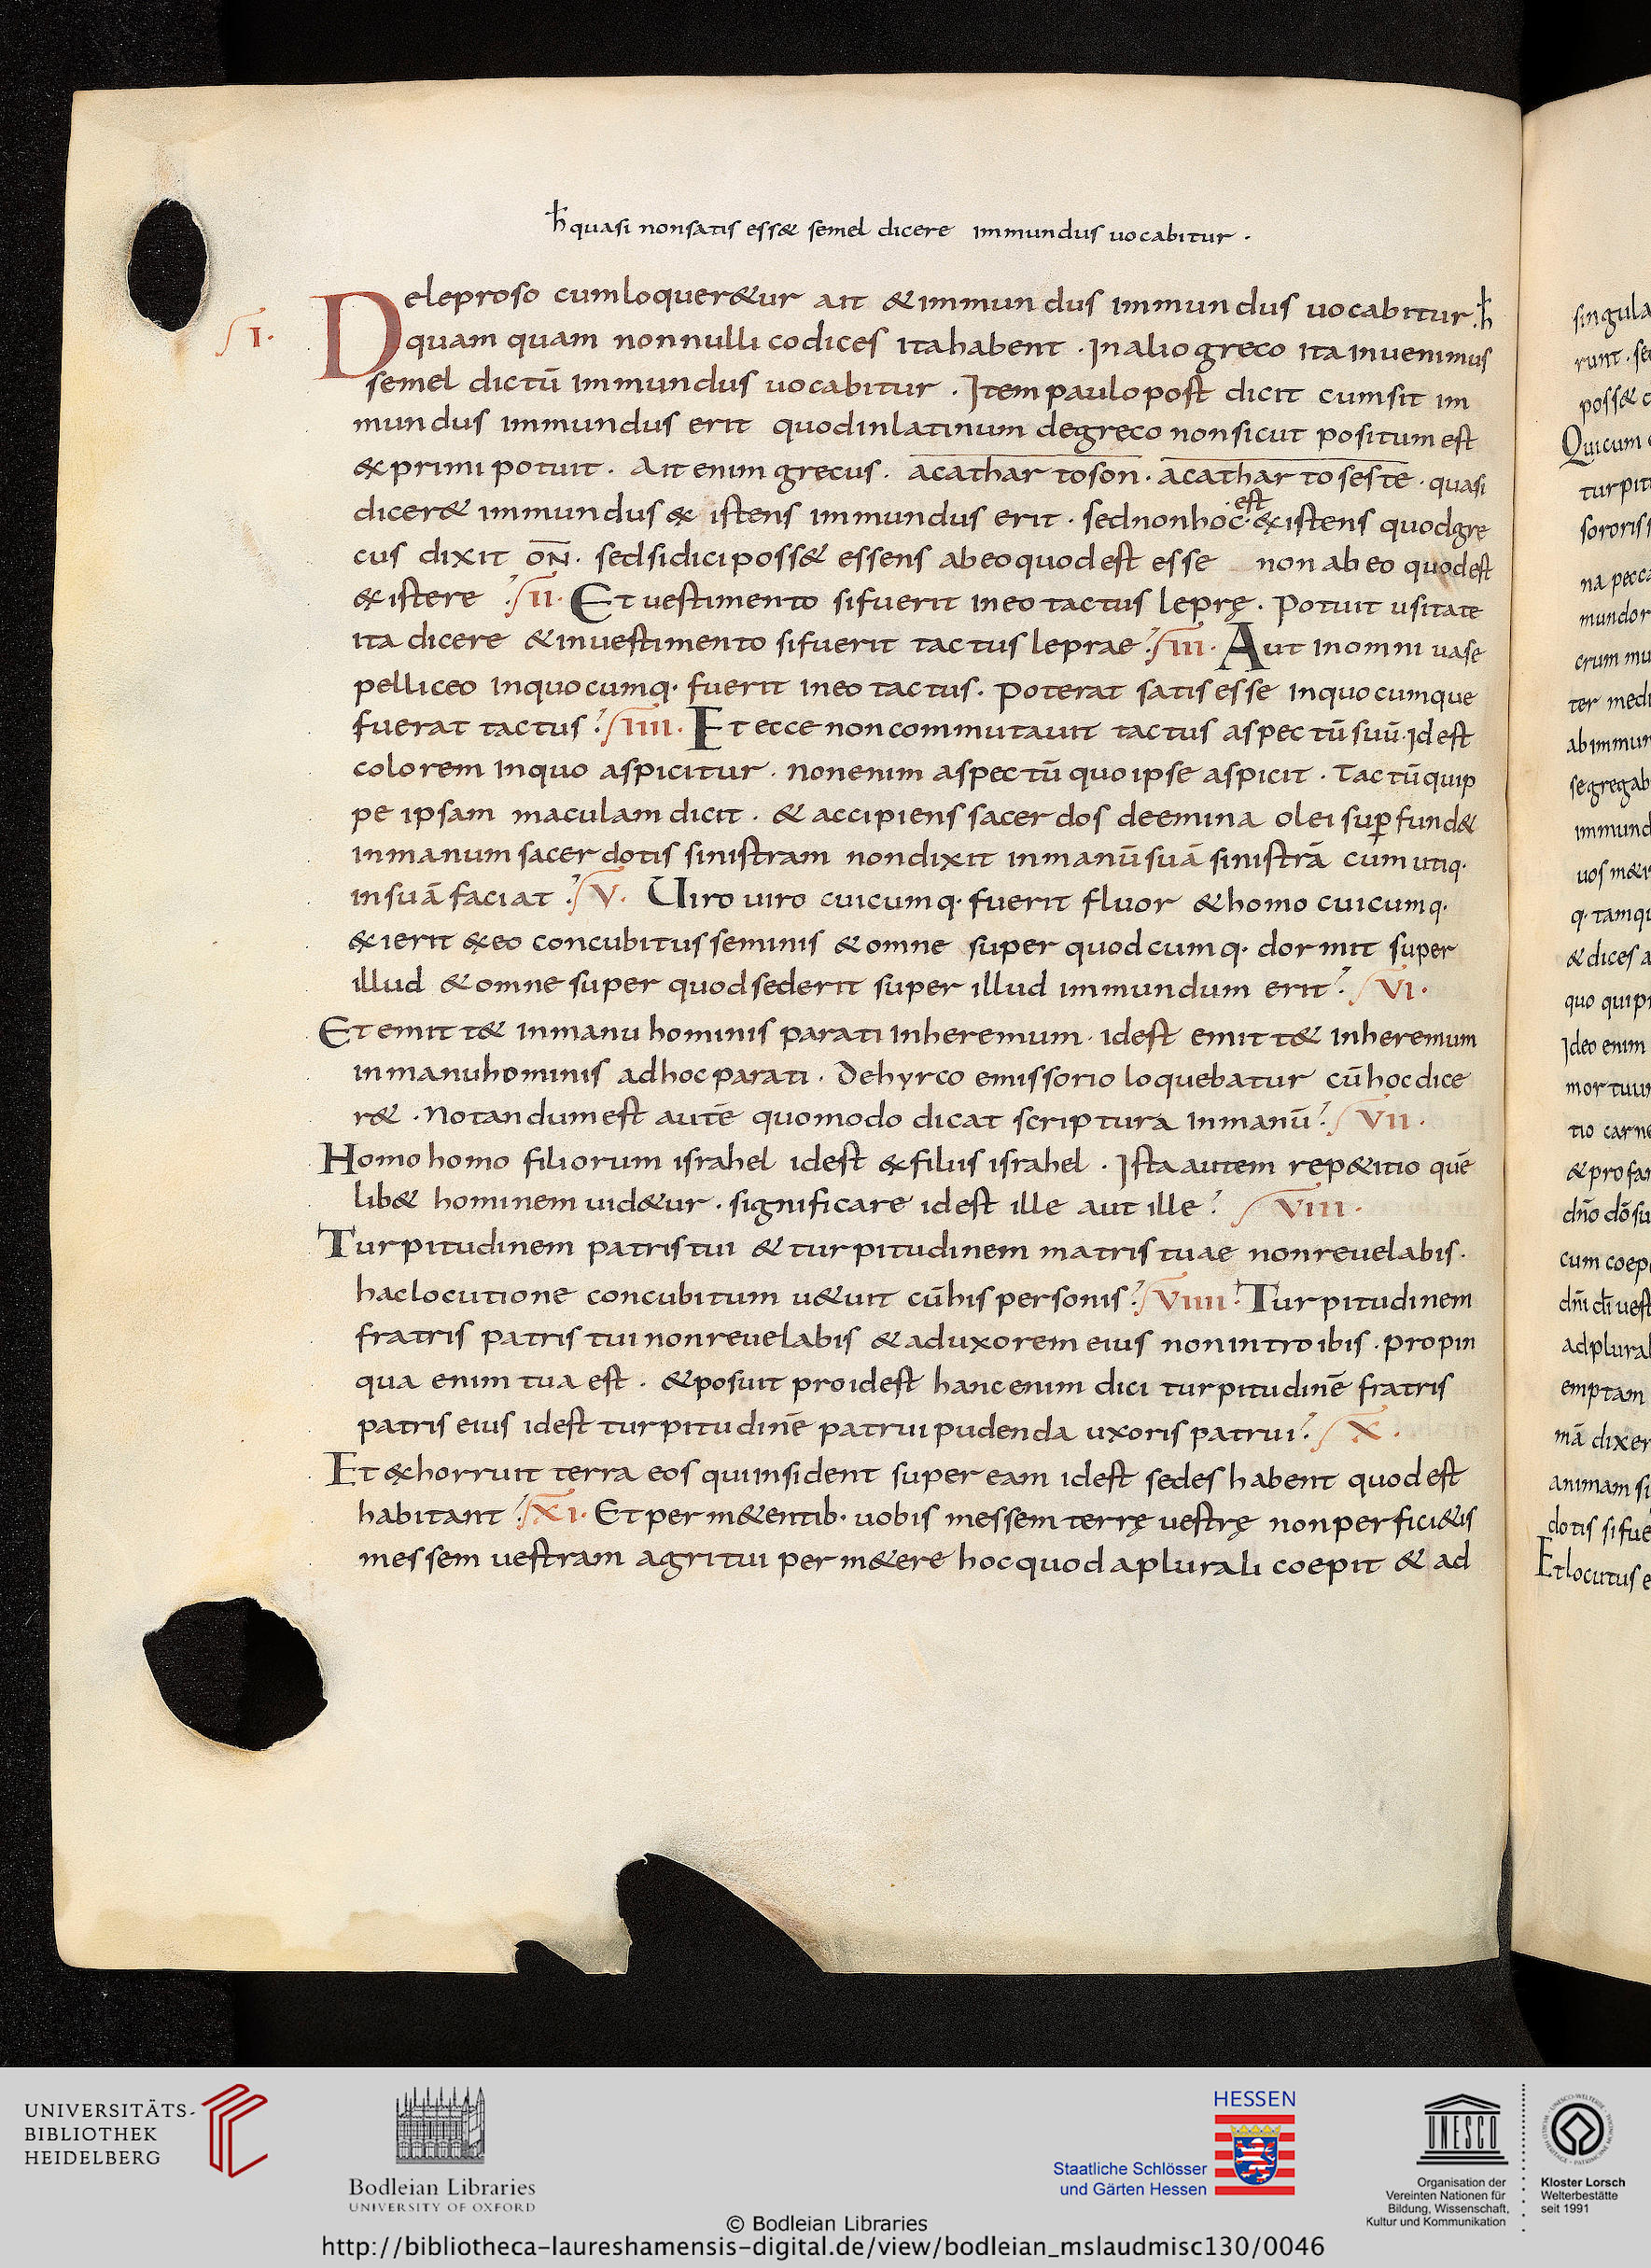 ħ quasi non satis ess& semel dicere immundus uocabitur .
S I. Deleproso cum loquer&ur ait & immundus immundus uocabitur . ħ
quam quam nonnulli codices ita habent . In alio greco ita inuenimus
semel dictū immundus uocabitur . Item paulo post dicit cum sit im
mundus immundus erit quod in latinum de greco non sicut positum est
&primi potuit . Ait enim grecus . acathar toson . acathar toseste . quasi
dicer& immundus &istens immundus erit . sed non hoc · est · &xistens quod gre
cus dixit ON̄ . sed si dici poss& essens ab eo quod est esse non ab eo quod est
&istere . S II . Et uestimento si fuerit in eo tactus leprę . potuit usitate
ita dicere & in uestimento si fuerit tactus leprae . S III . Aut in omni uase
pelliceo in quocumq· fuerit in eo tactus . poterat satis esse in quocumque
fuerat tactus . S IIII . Et ecce non commutauit tactus aspectū suū . id est
colorem in quo aspicitur . non enim aspectū quo ipse aspicit . Tactū quip
pe ipsam maculam dicit . & accipiens sacerdos de emina olei sup̱ fund&
in manum sacerdotis sinistram non dixit in manū suā sinistrā cum utiq·
in suā faciat . S V . Uiro uiro cuicumq· fuerit fluor & homo cuicumq·
&ierit &xeo concubitus seminis & omne super quodcumq· dormit super
illud & omne super quod sederit super illud immundum erit . S VI .
Et emitt& in manu hominis parati in heremum . id est emitt& in heremum
in manu hominis ad hoc parati . De hyrco emissorio loquebatur cū hoc dice
r& . Notandum est autē quomodo dicat scriptura in manū . S VII .
Homo homo filiorum israhel id est &x filiis israhel . Ista autem rep&itio quē
lib& hominem uid&ur . significare id est ille aut ille . S VIII .
Turpitudinem patris tui & turpitudinem matris tuae non reuelabis .
hac locutione concubitum u&uit cū his personis . S VIIII . Turpitudinem
fratris patris tui non reuelabis & ad uxorem eius non introibis . propin
qua enim tua est . & posuit pro id est hanc enim dici turpitudinē fratris
patris eius id est turpitudinē patrui pudenda uxoris patrui . S X .
Et &xhorruit terra eos qui insident super eam id est sedes habent quod est
habitant . S XI . Et perm&entib· uobis messem terrę uestrę non perfici&is
messem uestram agri tui perm&ere hoc quod a plurali coepit & ad
UNIVERSITÄTS-
BIBLIOTHEK
HEIDELBERG
Bodleian Libraries
UNIVERSITY OF OXFORD
HESSEN
Staatliche Schlösser
und Gärten Hessen
UNESCO
Organisation der
Vereinten Nationen für
Bildung, Wissenschaft,
Kultur und Kommunikation
Kloster Lorsch
Welterbestätte
seit 1991
© Bodleian Libraries
http://bibliotheca-laureshamensis-digital.de/view/bodleian_mslaudmisc130/0046